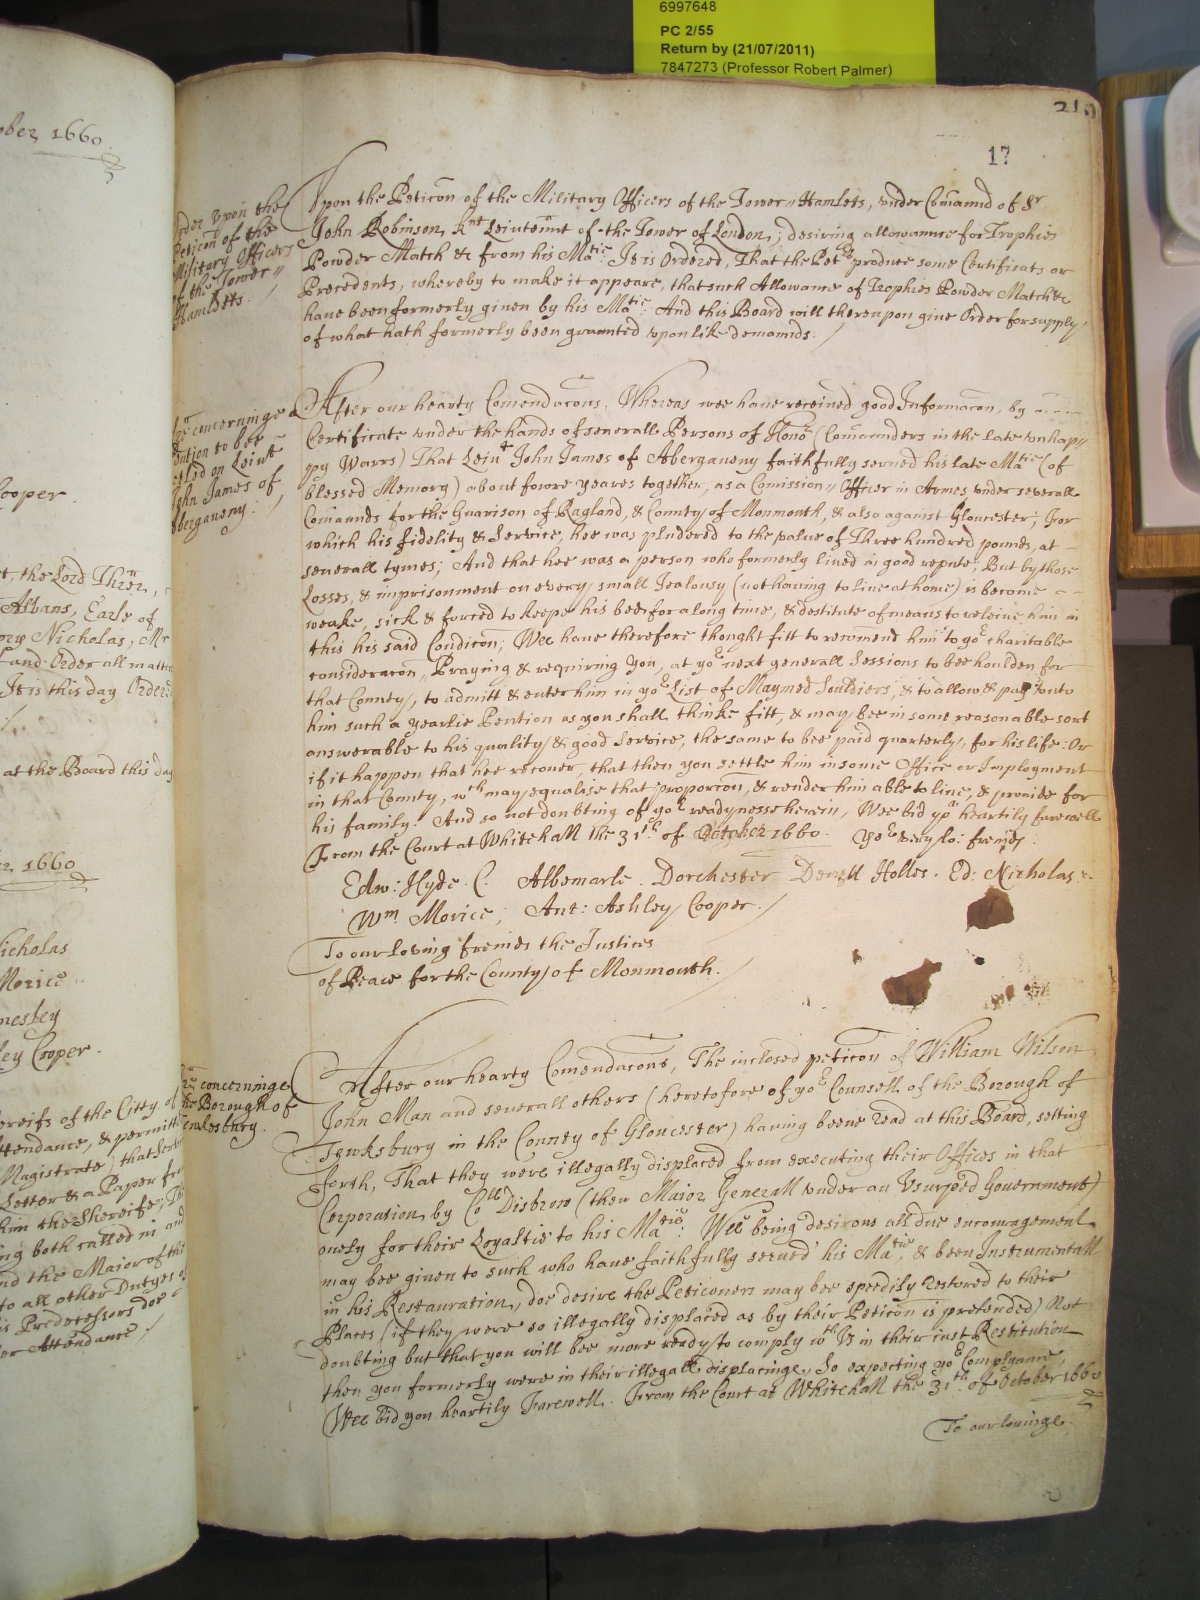 6997648
PC 2/55
Return by (21/07/2011)
7847273 (Professor Robert Palmer)
ober 1660.
17
Vpon the Peticon of the Military Officers of the Tower-Hamlets, vnder Comannd of Sr
John Robinson, Knt Leiutennt of the Tower of London; desiring allowannce for Trophies
Powder Match & from his Matie. It is Ordered, That the Petrs produce some Certificats or
Precedents, whereby to make it appeare, that such Allowance of Trophies Powder Match &c
haue been formerly giuen by his Matie. And this Board will therevpon giue Order for supply
of what hath formerly been graunted vpon like demannds.
order vpon the
Peticon of the
Military Officers
of the Tower
Hamletts.
After our hearty Comendacons, Whereas wee haue received good Informacon, by a
Certificate vnder the hands of seuerall Persons of Hono (Comannders in the late vnhap
py Warrs) That Leiut John James of Abergaueny faithfully serued his late Matie (of
blessed Memory) about fowre yeares together, as a Comission Officer in Armes vnder seuerall
Comannds for the Guarison of Ragland, & County of Monmouth, & also against Gloucester; For
which his fidelity & Service, hee was plundered to the value of Three hundred pounds, at
seuerall tymes; And that hee was a person who formerly liued in good repute, But by those
Losses, & imprisonment on euery small Jealousy (not hauing to liue at home) is become
weake, sick & forced to keepe his bed for a long time, & destitute of means to releiue him in
this his said Condicon; Wee haue therefore thought fitt to recomend him to yor charitable
consideracon, Praying & requiring you, at yor next generall Sessions to bee houlden for
that County, to admitt & enter him in yor List of Maymed Souldiers, & to allow & pay vnto
him such a yearlie Pention as you shall thinke fitt, & may bee in some reasonable sort
answerable to his quality & good Service, the same to bee paid quarterly, for his life: Or
if it happen that hee recouer, that then you settle him in some Office or Imployment
in that County, wch may equalase that proporcon, & render him able to liue, & prouide for
his family. And so not doubting of yor readynesse herein, Wee bid yo heartily farewell
From the Court at Whitehall the 31th of October 1660. Yor very lo: freinds.
Edw: Hyde C. Albemarle. Dorchester Denzll Holles. Ed: Nicholas
Wm. Morice; Ant: Ashley Cooper.
To our loving freinds the Justices
of Peace for the County of Monmouth.
concerninge a
ention to bee
led on Leiut
John James of
Abergaueny.
After our hearty Comendacons, The inclosed peticon of William Wilson
John Man and seuerall others (heretofore of yor Counsell of the Borough of
Tewksbury in the County of Gloucester) having beene read at this Board, setting
forth, That they were illegally displaced from executing their Offices in that
Corporation, by Coll Disbrow (then Maior Generall vnder an Vsurped Government)
onely for their Loyaltie to his Matie. Wee being desirous all due encouragement
may bee given to such who haue faithfully serued his Matie, & been Instrumentall
in his Restauration, doe desire the Peticoners may bee speedily restored to their
Places (if they were so illegally displaced as by their Peticon is pretended) Not
doubting but that you will bee more ready to comply wth Vs in their iust Restitution
then you formerly were in their illegall displacinge, So expecting yor Complyance,
Wee bid you heartily Farewell. From the Court at Whitehall the 31th of October 1660
To our louinge
concerninge
the Borough of
Tewkesbury.
Cooper.
t, the Lord Threr,
Albans, Earle of
Nicholas, Mr
and Order all matte
It is this day Ordere
at the Board this day
1660
Nicholas
Morice
nesley
ley Cooper.
ereifs of the Citty of
Attendance, & permitt
Magistrate) that
Letter & a Paper
him the Shereife;
ing both called in and
nd the Maior of the
to all other Dutyes of
is Predecessors doe
er Attendance